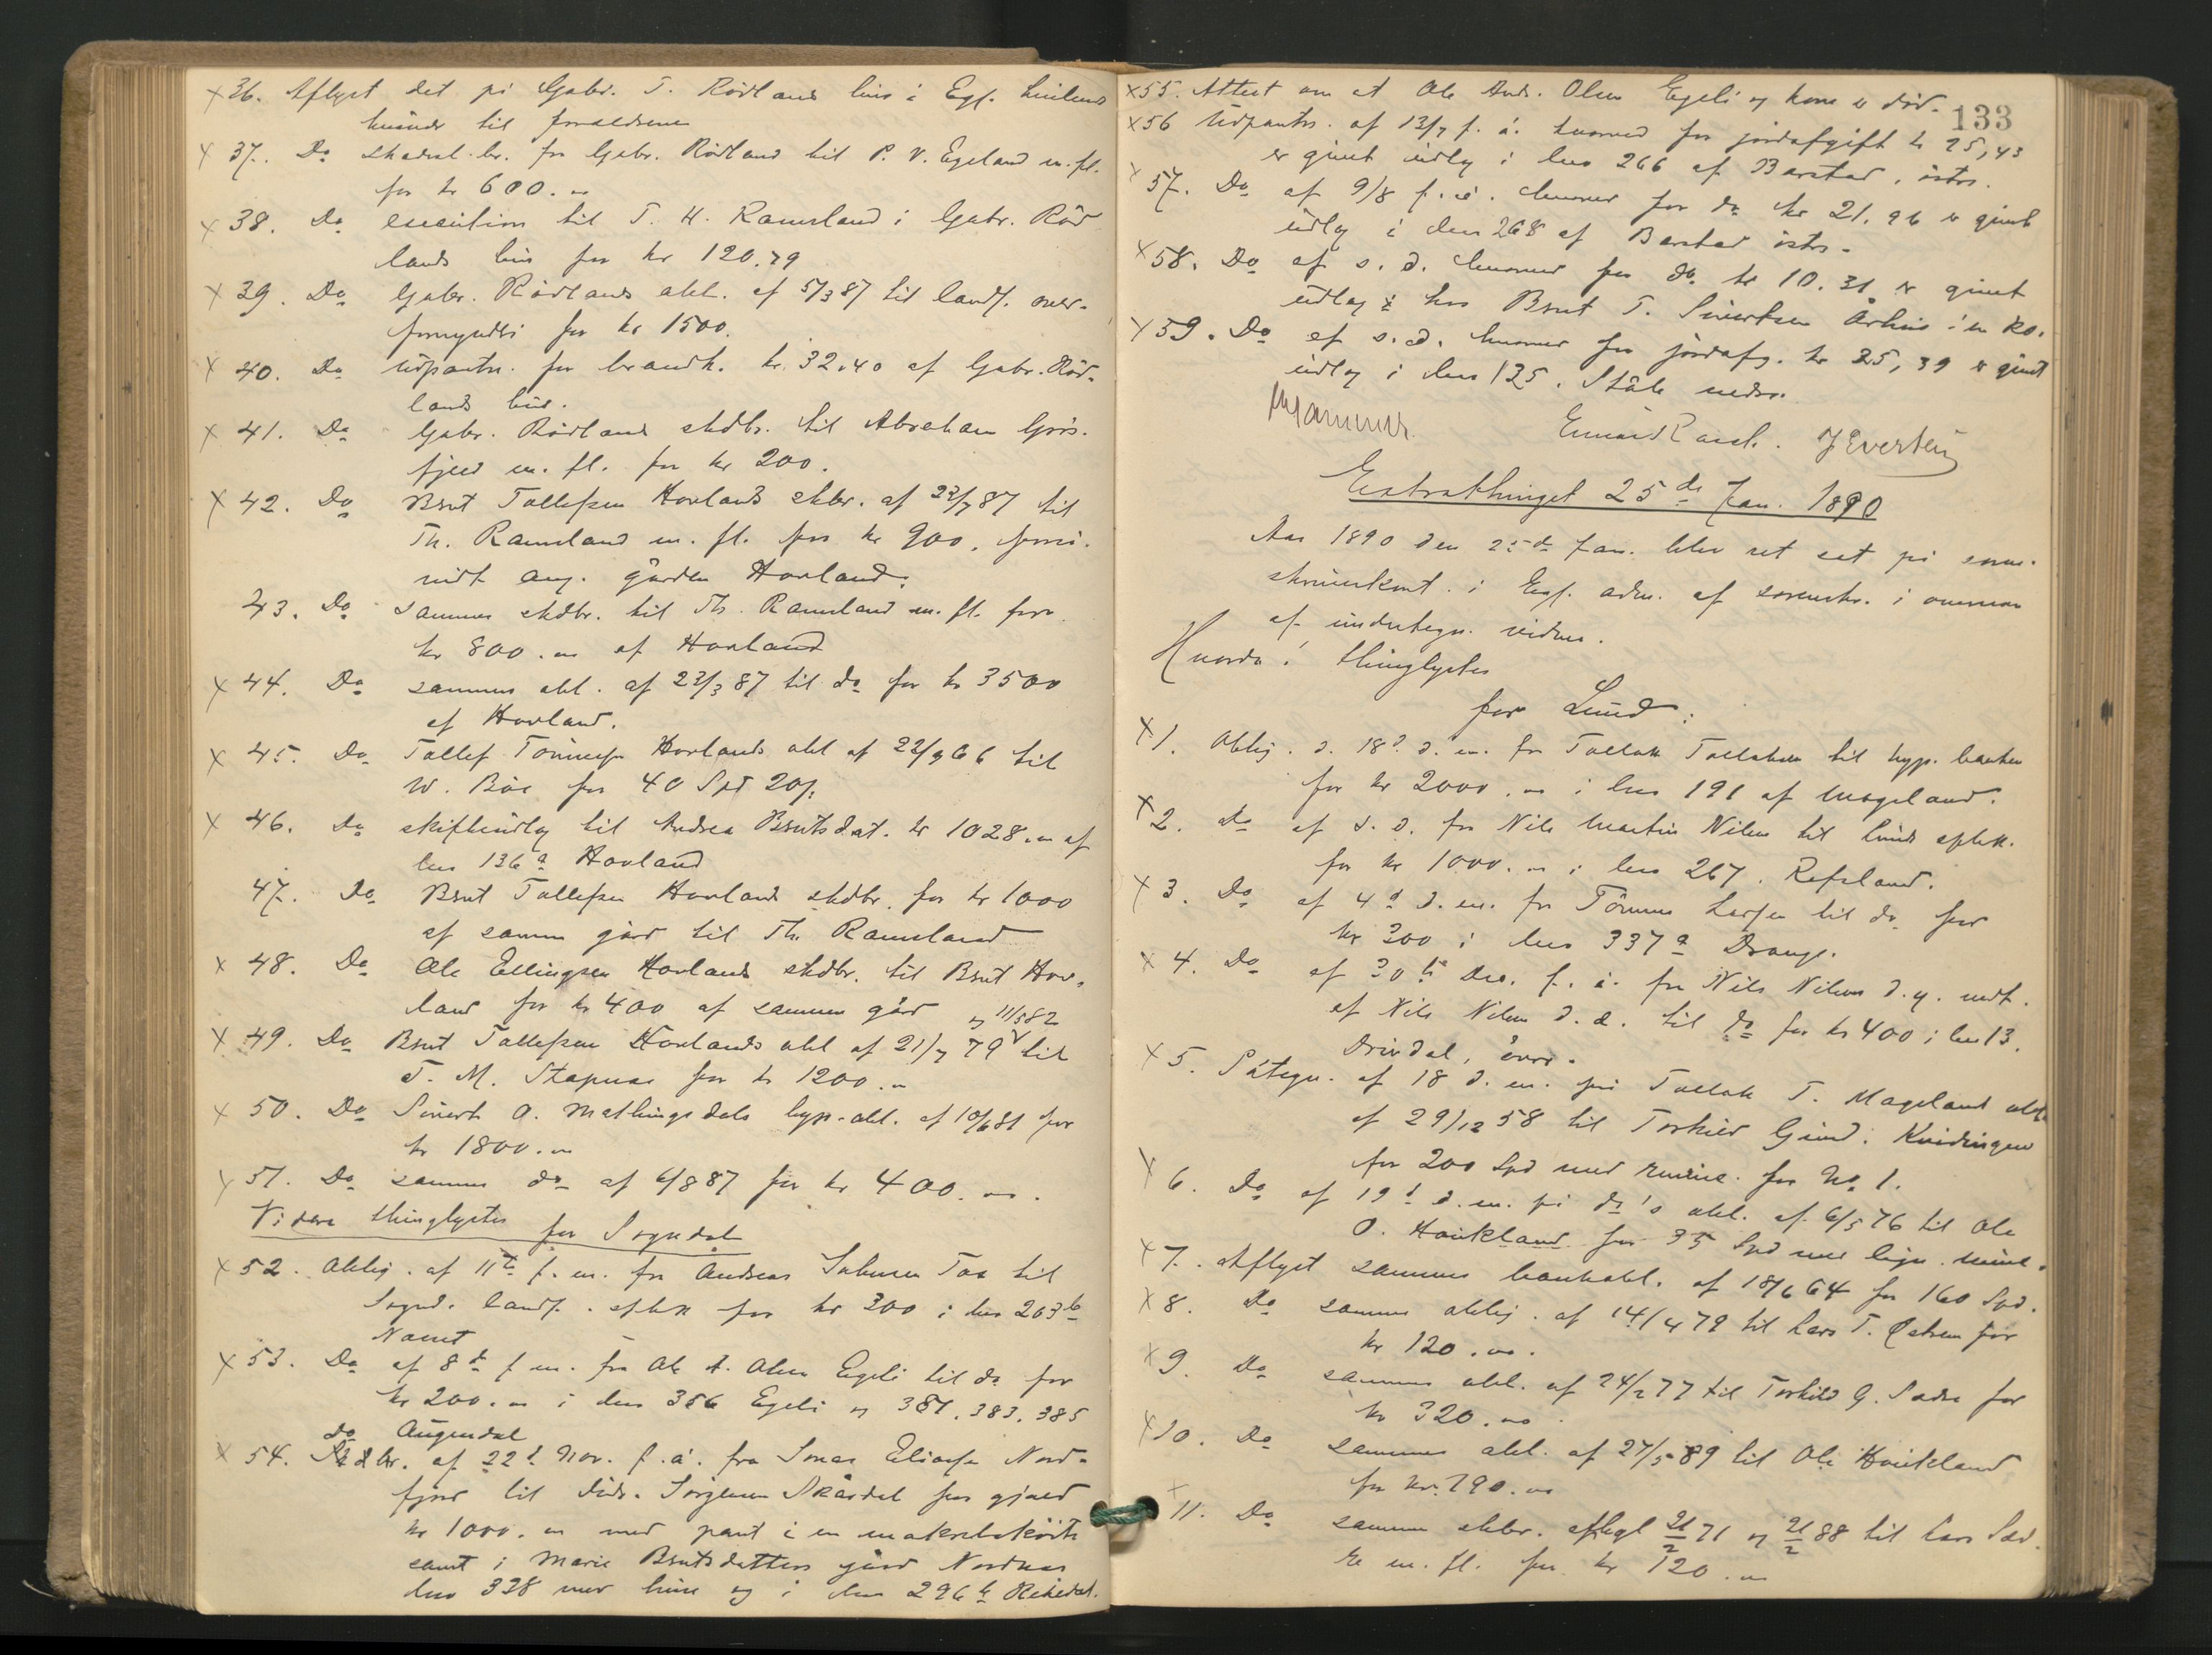 x 36. Aflyst det på Gabr. T. Rödlands hus i Egs. hvilende
til forældrene
x 37. Do skadesl.br. fra Gabr. Rödland til P. V. Egeland m. fl.
for kr 600. "
x 38. Do execution til T. H. Ramsland i Gabr. Röd
lands hus for kr 120.79
x 39. Do Gabr. Rödlands obl. af 5/3 87 til landf. over-
formynderi for kr 1500.
x 40. Do udpantn. for brandk. kr. 32.40 af Gabr. Röd-
lands hus.
x 41. Do Gabr. Rödlands skdbr. til Abraham Grös-
fjeld m. fl. for kr 200.
x 42. Do Brnt Tollefsen Hovlands skbr. af 23/7 87 til
Th. Ramsland m. fl. for kr 900,
ang. gården Hovland.
43. Do sammes skdbr. til Th. Ramsland m. fl. for
kr 800. " af Hovland
x 44. Do sammes obl. af 23/3 87 til do for kr 3500
af Hovland.
x 45. Do Tollef Tönnesen Hovlands obl af 22/9 66 til
W. Böe for 40 Spd 20 s.
x 46. Do skifteudlæg til Andrea Brntsdat. kr 1028. " af
lno 136 a Hovland
47. Do Brnt Tollefsen Hovlands skdbr. for kr 1000
af samme gård til Th. Ramsland
x 48. Do Ole Ellingsen Hovlands skdbr. til Brnt Hov-
land for kr 400 af samme gård
og 11/5 82
x 49. Do Brnt Tollefsen Hovlands obl af 21/7 79 til
T. M. Stapnæs for kr 1200. "
x 50. Do Sivert O. Mathingsdals hyp. obl. af 10/6 81 for
kr 1800. "
x 51. Do sammes do af 6/8 87 for kr 400. ".
Videre thinglystes for Sogndal
x 52. Oblig. af 11te f. m. fra Andreas Salmon Toa til
Sognd. landf. for kr 300 i lno 203 b
x 53. Do af 8de f m. fra Ole A. Olsen Egeli til do for
kr 200. " i lno 356 Egeli og 381. 383. 385
do Augendal
x 54. Skdbr. af 22d Nov. f. å. fra Jonas Eliasen Nord-
fjord til Jörgensen Skårdal for gjæld
kr 1000. " med pant i en makrelsköite
samt i Marie Brntsdatters gård Nordnæs
lno 328 med huse og i lno 296 b Rekedal.
133
x 55. Attest om at Ole Andr. Olsen Egeli og kone er död.
x 56 Udpantn. af 13/7 f. å. hvorved for jordafgift kr 25,43
er gjort udlæg i lno 266 af Barstad, östre.
x 57. Do af 9/8 f. å. hvorved for do kr 21.96 er gjort
udlæg i lno 268 af Barstad östre.
x 58. Do af s. d. hvorved for do kr 10.31 er gjort
udlæg hos Brnt T. Sivertsen Århus i en ko.
x 59. Do af s. d. hvorved for jordafg. kr 25,39 er gjort
udlæg i lno 125. Ståle nedre.
Einar Rasch. J Evertsen
Extrathinget 25de Jan. 1890
Aar 1890 den 25de Jan. blev ret sat på soren-
skriverkont. i Egs. adm. af sorenskr. i overvær
af undertegn. vidner.
Hvorda! thinglystes
for Lund:
x 1. Oblig. d. 18d d. m. fra Tollak Tollaksen til hyp. banken
for kr 2000. " i lno 191 af Mogeland.
x 2. do af s. d. fra Nils Martin Nilsen til Lunds
for kr 1000. " i lno 267. Refsland.
x 3. Do af 4d d. m. fra Tönnes Larsen til do for
kr 300 i lno 337 a Drange.
x 4. Do af 30te Dec. f. å. fra Nils Nilsen d. y. vedt.
af Nils Nilsen d. æ. til do for kr 400 i lno 13.
Drivdal, övre.
x 5. Påtegn. af 18 d. m. på Tollak T. Mageland obl.
af 29/12 58 til Torkild Gund. Kvidingen
for 200 Spd med for No 1.
x 6. Do af 19d d. m. på do's obl. af 6/5 76 til Ole
O. Haukland for 35 Spd med lign.
x 7. Aflyst sammes bankobl. af 18/6 64 for 160 Spd.
x 8. Do sammes oblig. af 14/4 79 til Lars T. for
kr 120. ".
x 9. Do sammes obl. af 24/2 77 til Torkild G. for
kr 320. "
x 10. Do sammes obl. af 27/5 89 til Ole Haukland
for kr. 790. "
x 11. Do sammes skbr. 21/2 71 og 21/2 88 til Lars
m. fl. for kr 120. "